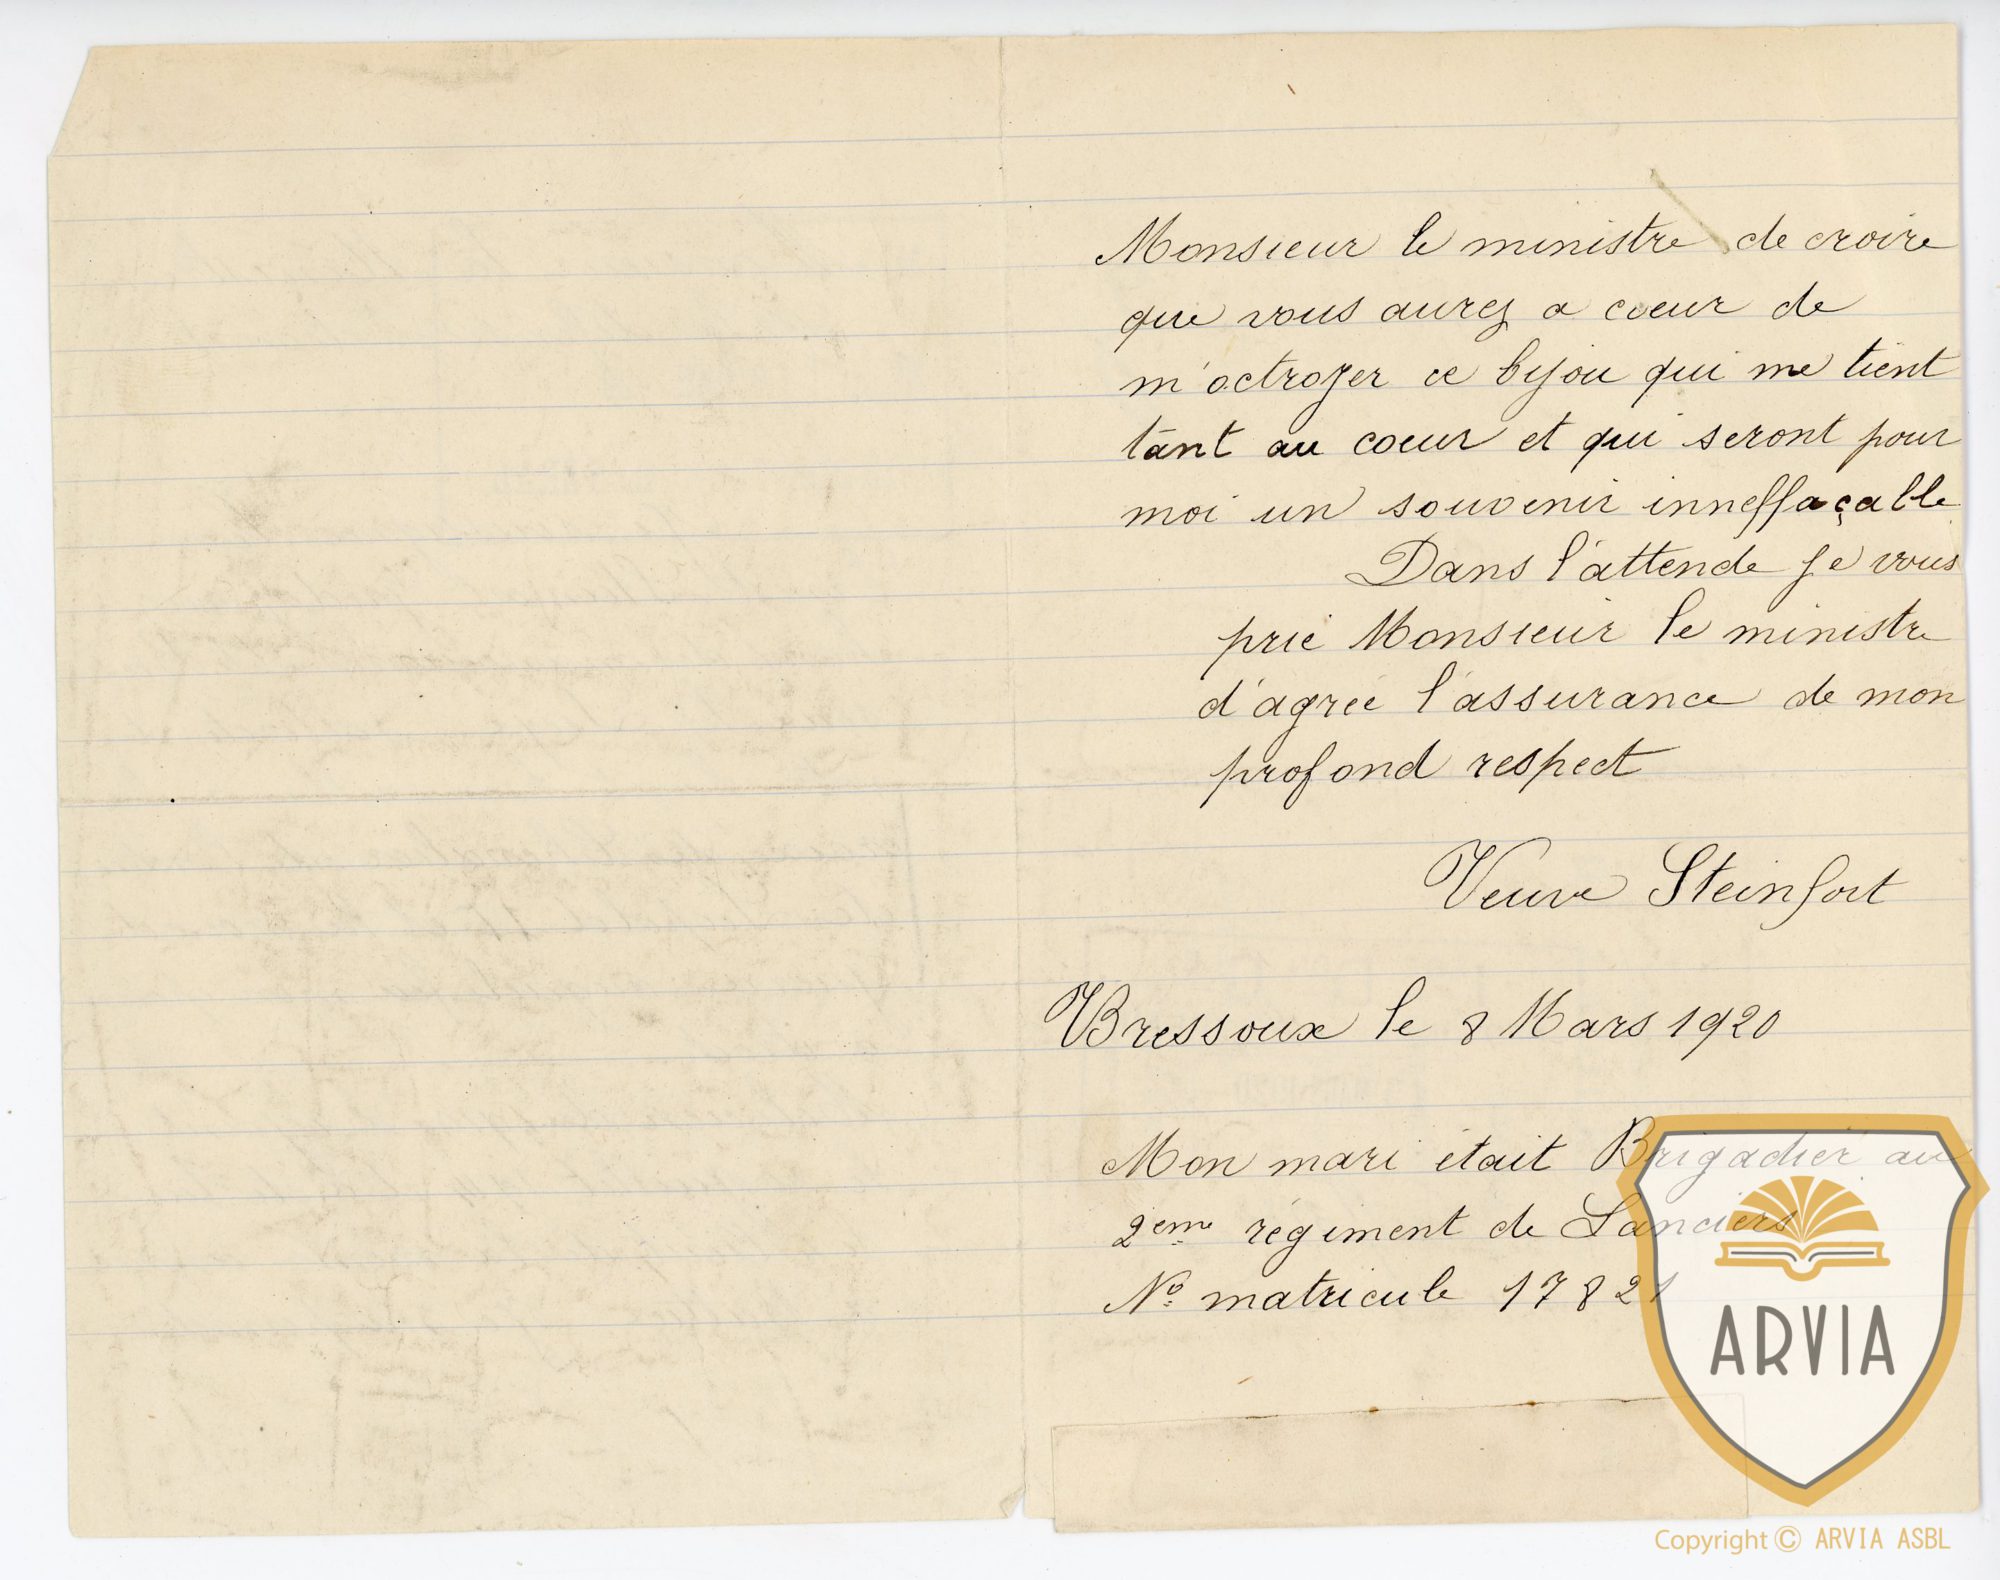 Monsieur le ministre de croire
que vous aurez a coeur de
m'octroyer ce bijou qui me tient
tant au coeur et qui seront pour
moi un souvenir inneffaçable
Dans l'attende je vous
prie Monsieur le ministre
d'agrée l'assurance de mon
profond respect
Veuve Steinfort
Bressoux le 8 Mars 1920
Mon mari était Brigadier au
2eme régiment de Lanciers
No matricule 17821
ARVIA
Copyright © ARVIA ASBL